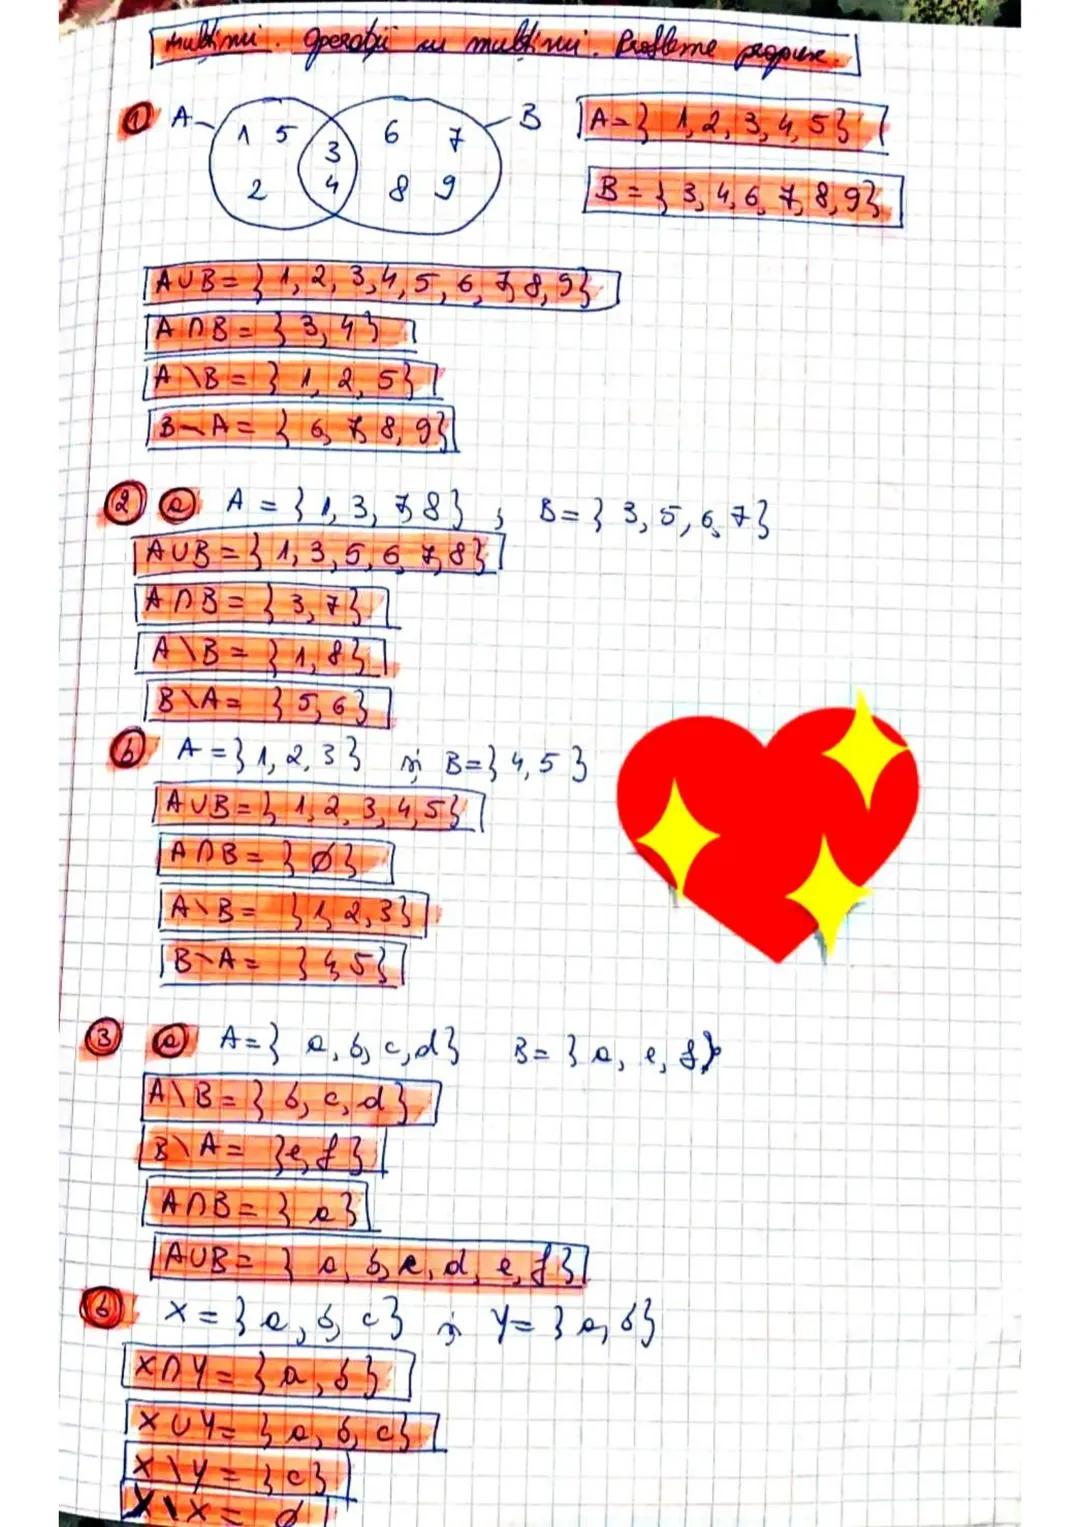 Mulțimi. Operații cu mulțimi. Probleme propuse.
① A B A={1,2,3,4,5}
1 5 3 6 7
2 4 8 9
B={3,4,6,7,8,9}
A∪B={1,2,3,4,5,6,7,8,9}
A∩B={3,4}
A\B={1,2,5}
B\A={6,7,8,9}
② ⓐ A={1,3,7,8}; B={3,5,6,7}
A∪B={1,3,5,6,7,8}
A∩B={3,7}
A\B={1,8}
B\A={5,6}
ⓑ A={1,2,3} și B={4,5}
A∪B={1,2,3,4,5}
A∩B={∅}
A\B={1,2,3}
B\A={4,5}
③ ⓐ A={a,b,c,d} B={a,e,f}
A\B={b,c,d}
B\A={e,f}
A∩B={a}
A∪B={a,b,c,d,e,f}
ⓑ X={a,b,c} și Y={a,b}
X∩Y={a,b}
X∪Y={a,b,c}
X\Y={c}
Y\X=∅